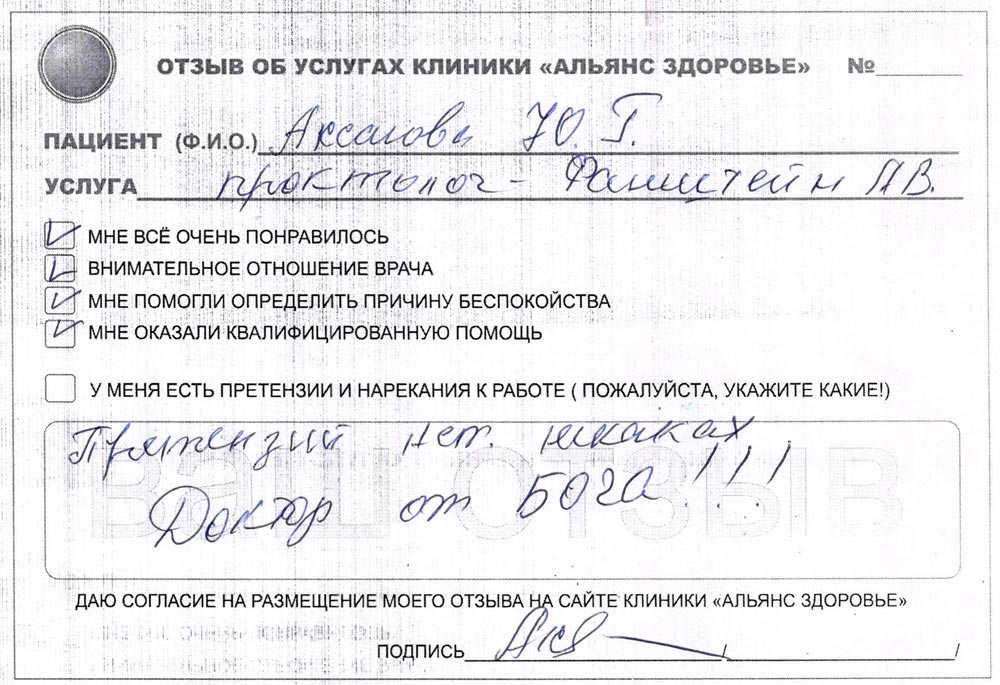 ОТЗЫВ ОБ УСЛУГАХ КЛИНИКИ «АЛЬЯНС ЗДОРОВЬЕ» №
ПАЦИЕНТ (Ф.И.О.) Ю. Г.
УСЛУГА проктолог - Фанштейн А.В.
МНЕ ВСЁ ОЧЕНЬ ПОНРАВИЛОСЬ
ВНИМАТЕЛЬНОЕ ОТНОШЕНИЕ ВРАЧА
МНЕ ПОМОГЛИ ОПРЕДЕЛИТЬ ПРИЧИНУ БЕСПОКОЙСТВА
МНЕ ОКАЗАЛИ КВАЛИФИЦИРОВАННУЮ ПОМОЩЬ
У МЕНЯ ЕСТЬ ПРЕТЕНЗИИ И НАРЕКАНИЯ К РАБОТЕ ( ПОЖАЛУЙСТА, УКАЖИТЕ КАКИЕ!)
Притензий нет. никаках
Доктор от БОГа!!!
ВАШ ОТЗЫВ
ДАЮ СОГЛАСИЕ НА РАЗМЕЩЕНИЕ МОЕГО ОТЗЫВА НА САЙТЕ КЛИНИКИ «АЛЬЯНС ЗДОРОВЬЕ»
ПОДПИСЬ / /